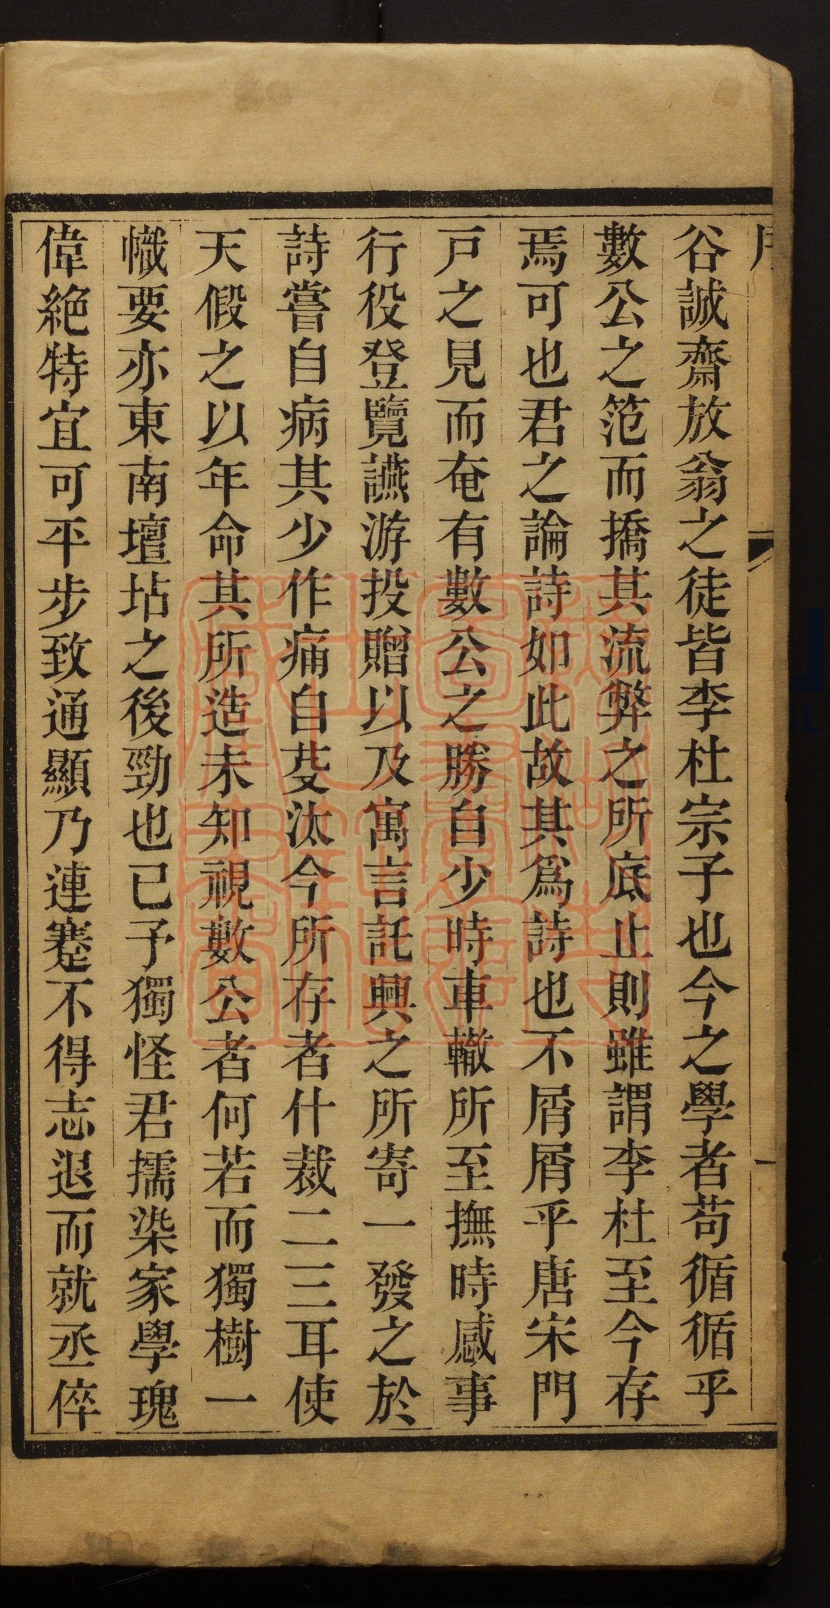 谷誠齋放翁之徒皆李杜宗子也今之學者苟循循乎
數公之范而撟其流弊之所底止則雖謂李杜至今存
焉可也君之論詩如此故其爲詩也不屑屑乎唐宋門
戸之見而奄有數公之勝自少時車轍所至撫時感事
行役登覽讌游投贈以及寓言託興之所寄一發之於
詩嘗自病其少作痛自芟汰今所存者什裁二三耳使
天假之以年命其所造未知視數公者何若而獨樹一
幟要亦東南壇坫之後勁也已予獨怪君擩染家學瑰
偉絶特宜可平步致通顯乃連蹇不得志退而就丞倅